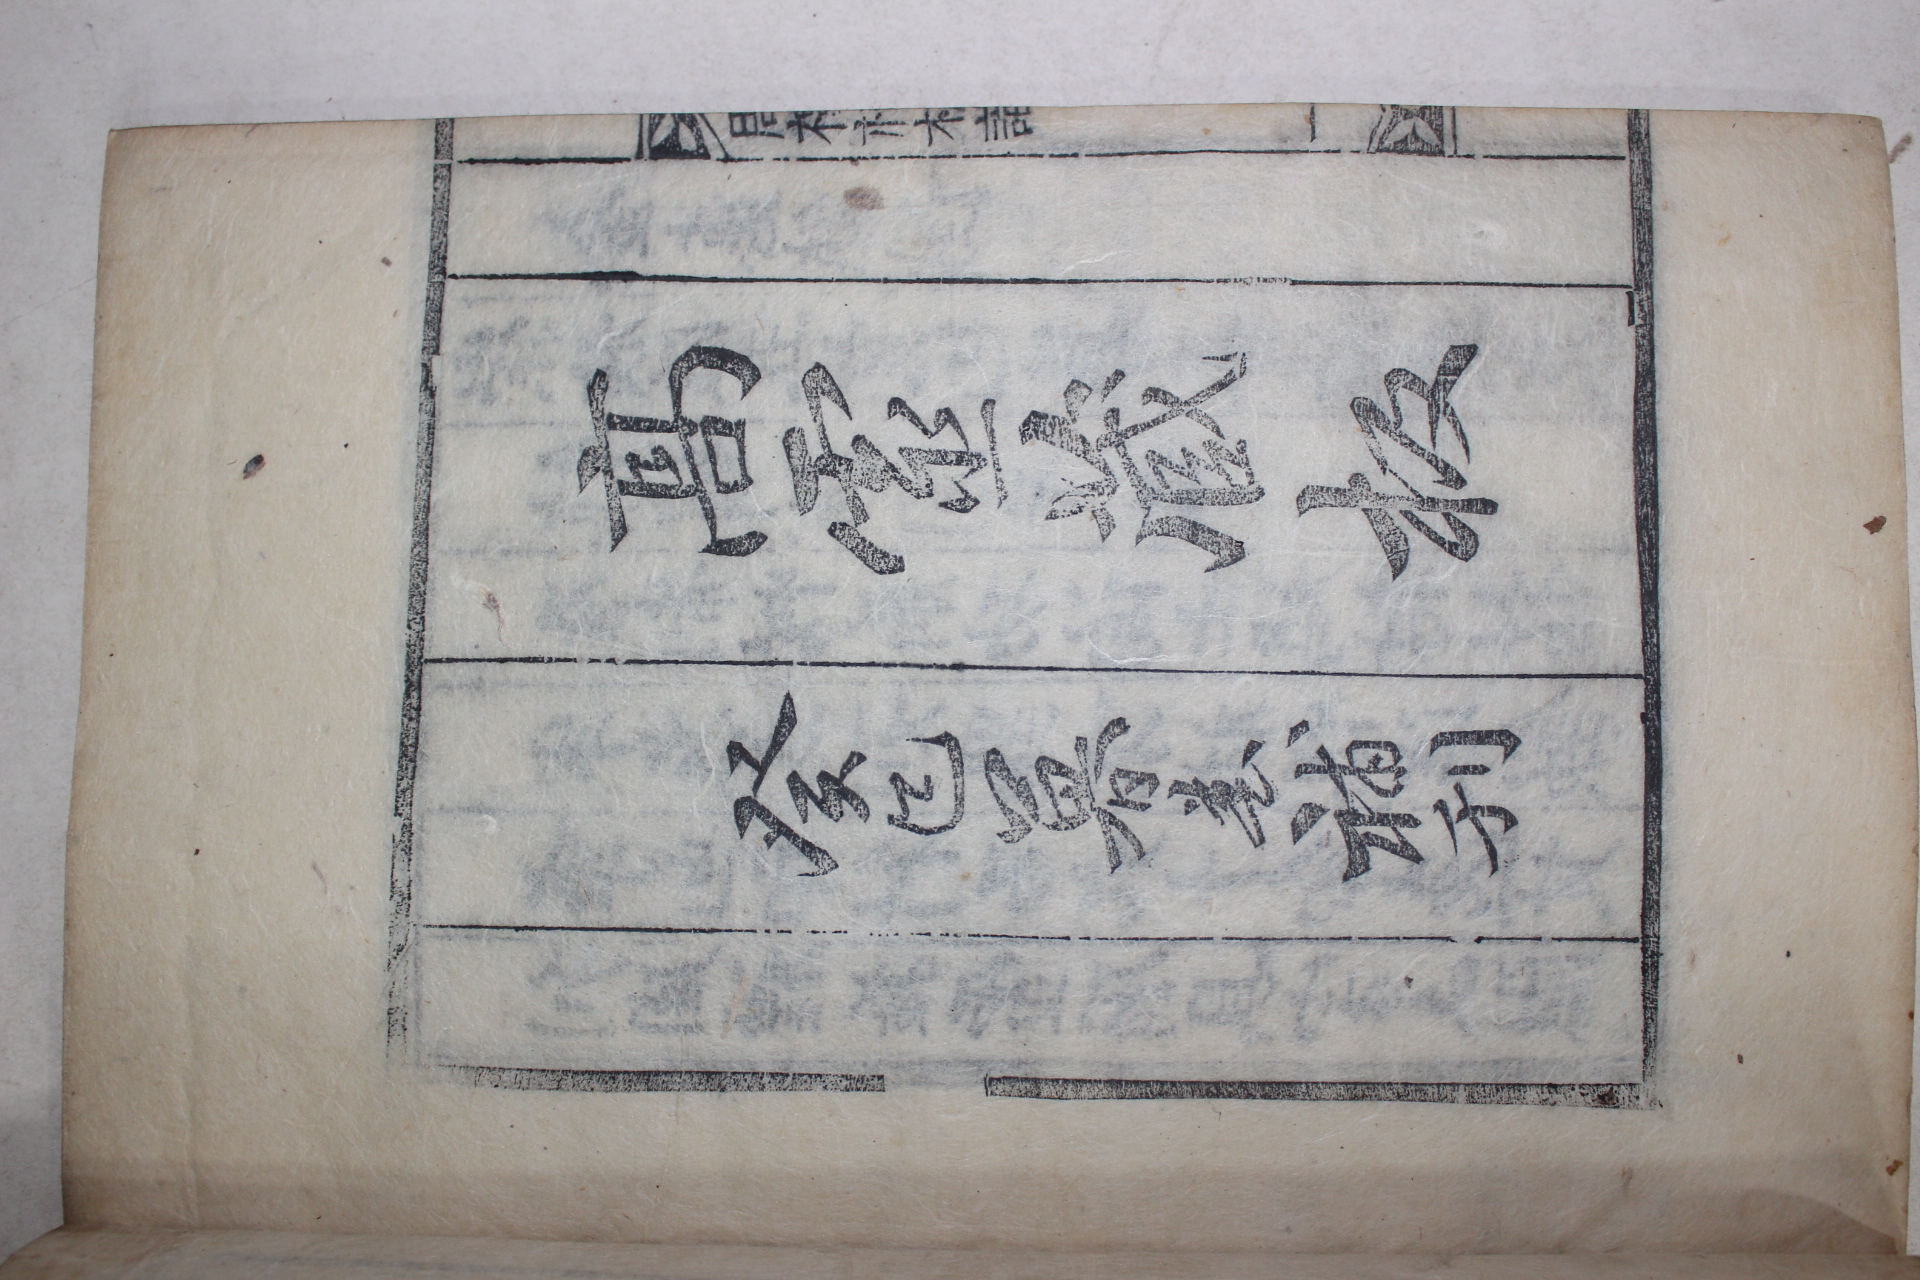 高靈藏板
癸巳暮春補刊